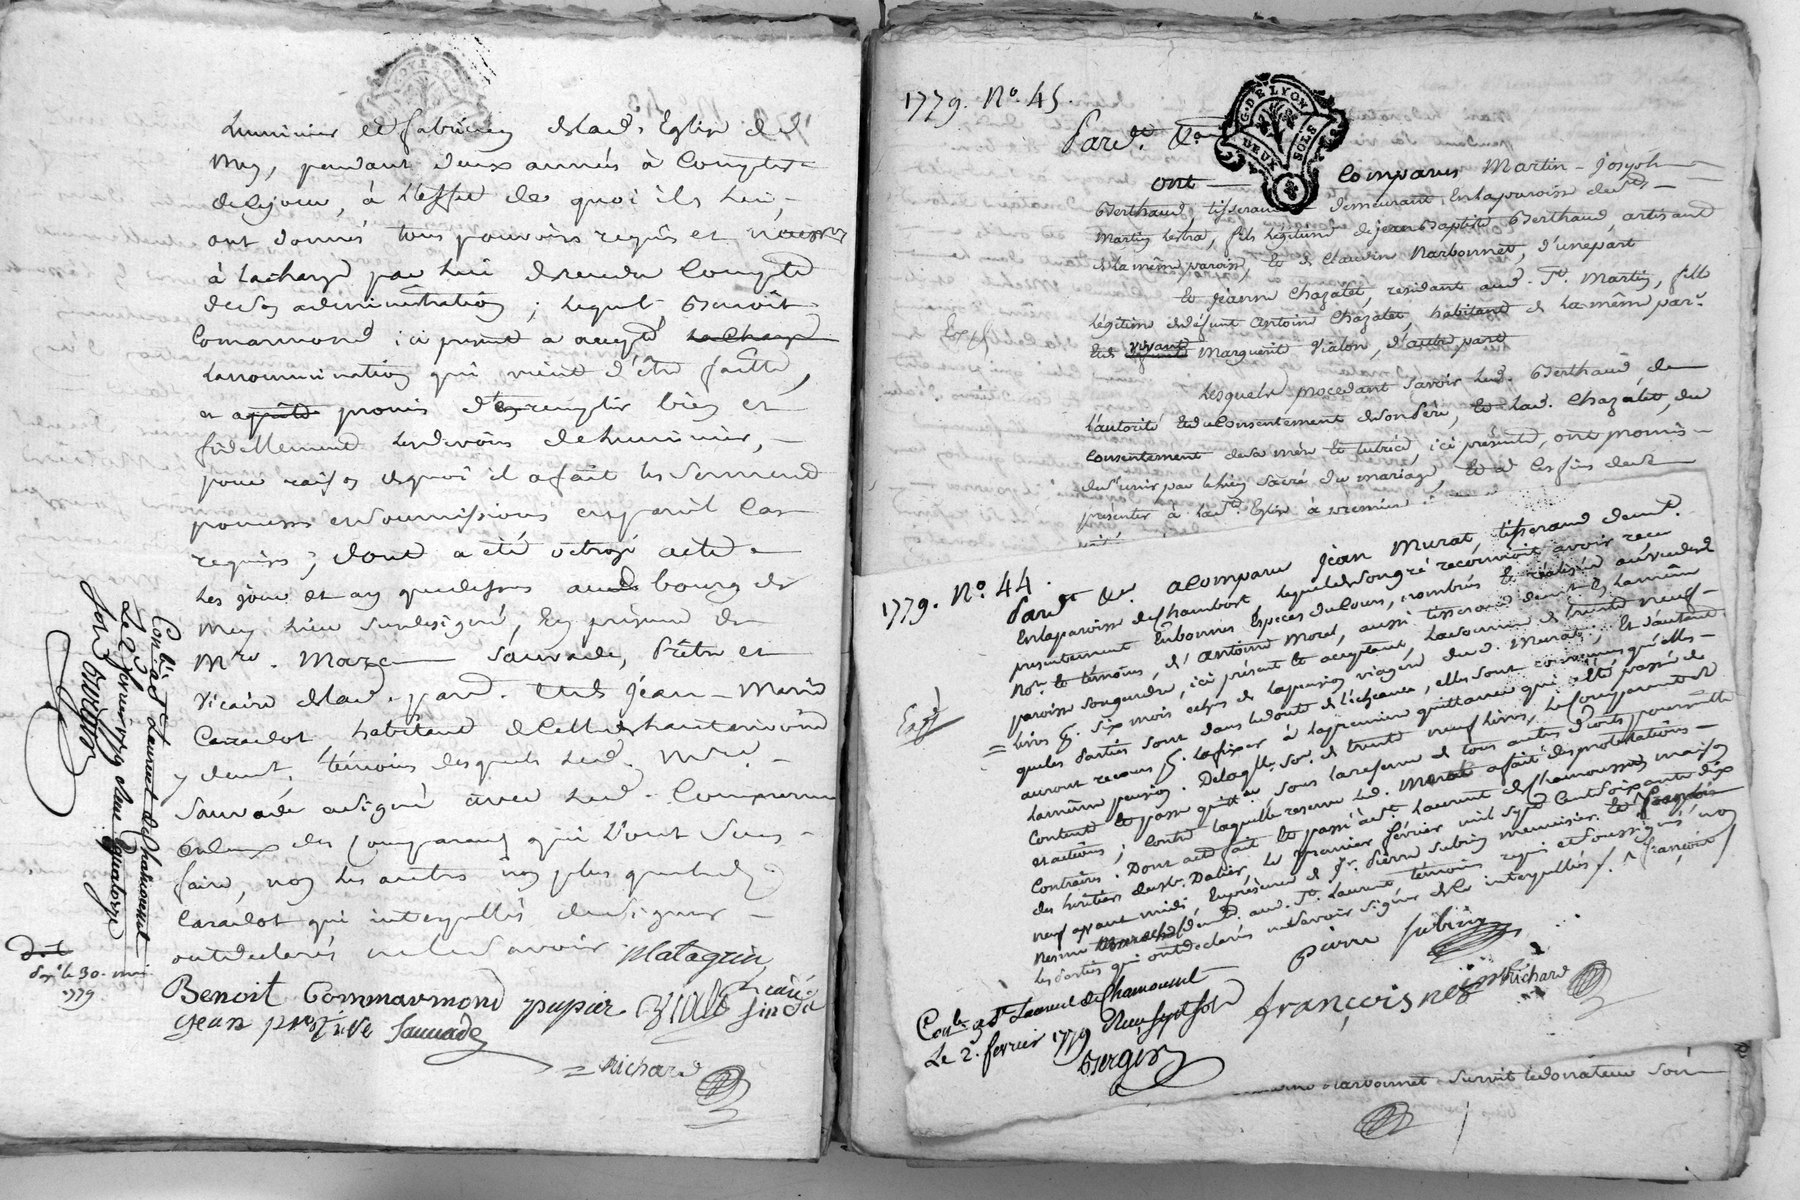 Luminier et fabricien de lad. Eglise de
Mey, pendant deux années à Compter
de ce jour, à l'effet de quoi ils lui
ont donnés tous pouvoirs requis et
à la charge par lui de rendre Compte
de son administration ; lequel Benoît
Commarmond ici présent a accepté la charge
la nomination qui vient d'être faitte,
et promis d'en remplir bien et
fidellement les devoirs de luminier,
pour raison de quoi il a fait les serment
promesses et soumissions en pareil Cas
requises ; dont a été octroyé acte
les jour et an que dessus aud. bourg de
Mey lieu susdésigné, En présence de
Mre. Sauvade, Prêtre et
Vicaire de lad. par. et de Jean-Marie
Caradot habitant de
y demt. témoins desquels led. Mre.
Sauvade a signé avec led. Commarmond
Ceux des Comparans qui l'ont sçus
faire, non les autres non plus que led.
Caradot qui interpellés de signer
ont déclarés ne le savoir Matagrin
Benoit Commarmond pupier
Jean Sauvade
Richard
Conlé à St. Laurent de Chamousset
Le 2 fevrier 1779 Reçu quatorze
sols
Expé. le 30. mai
1779
1779. No. 45.
G. DE LYON
DEUX SOLS
Pard. &a.
ont Comparus Martin-Joseph
Berthaud, tisserand demeurant En la paroisse de
Martin Lestra, fils légitime de jean Baptiste Berthaud artisant
de la même paroisse, et de Claudine Narbonnet, d'une part
Et Jeanne Chazalet, résidant aud. St. Martin, fille
légitime de défunt Antoine Chazalet, habitant de la même par.
Et de vivante Marguerite Vialon, d'autre part
Expé
Lesquels procedant savoir led. Berthaud de
l'autorité et du Consentement de son père, et lad. Chazalet, du
Consentement de sa mère et tutrice, ici présente, ont promis
de s'unir par le lien sacré du mariage, Et à Ces fins de se
présenter à la Ste. Eglise à la première
1779. No. 44.
Pardt. &a. a Comparu Jean Murat, tisserand demt.
En la paroisse de Chambost, lequel de son gré reconnoît avoir reçu
présentement En bonnes Espèces du Cours, nombrés et réalisés au vu desd.
Nore. et témoins, d'Antoine Morel, aussi tisserand demt. En la même
paroisse Longuesaigne, ici présent et acceptant, la somme de trente neuf
livres p. six mois echus de la pension viagère dud. Murat, Et d'autant
que les parties sont dans le doute de l'échéance, elles sont convenues qu'elles
auront recours p. la fixer à la première quittance qui a été passé de
la même pension. De laqlle. so. de trente neuf livres, le Comparant est
Content et passe quitt. sous la reserve de tous autres droits poursuitte
et actions ; Contre laquelle reserve led. Morel a fait des protestations
Contraires. Dont acte fait et passé à St. Laurent de Chamousset, maison
des héritiers du Sr. Dalier, le premier février mil sept Cent soixante dix
neuf avant midi, En présence de Sr. Pierre Subrin menuisier et françois
Nesme demt. aud. St. Laurent, témoins requis et soussignés, non
les parties qui ont déclarés ne savoir signer de Ce interpellés /. françois
Expé
pierre subrin
françois nesme Richard
Conlé à St. Laurent de Chamousset
Le 2. fevrier 1779 Reçu sept sols
Berger
Narbonnet. survit le donateur son